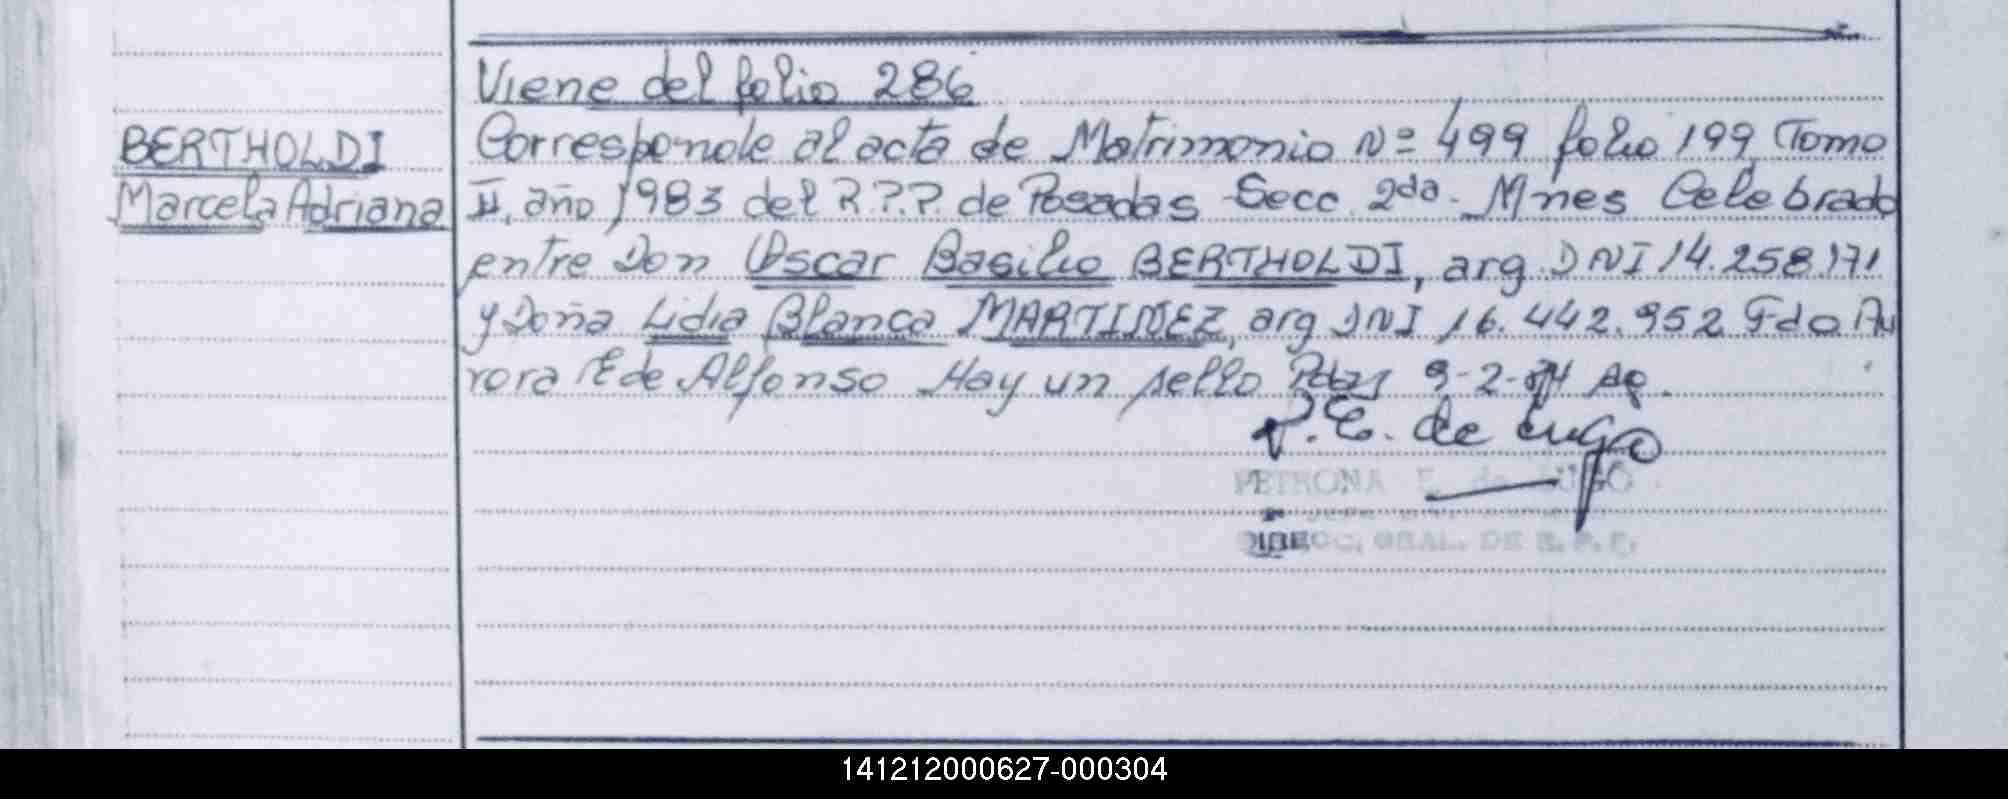 Viene del folio 286
BERTHOLDI
Marcela Adriana
Corresponde al acta de Matrimonio Nº 499 folio 199 Tomo
II, año 1983 del R.P.P. de Posadas Secc. 2da. Mnes Celebrado
entre Don Oscar Basilio BERTHOLDI, arg DNI 14.258.171
y Doña Lidia Blanca MARTINEZ, arg DNI 16.442.952 Fdo Au
rora E de Alfonso Hay un sello Pdas 9-2-84
P.E. de Lugo
PETRONA E. de LUGO
DIRECC. GRAL. DE R.P.P.
141212000627-000304